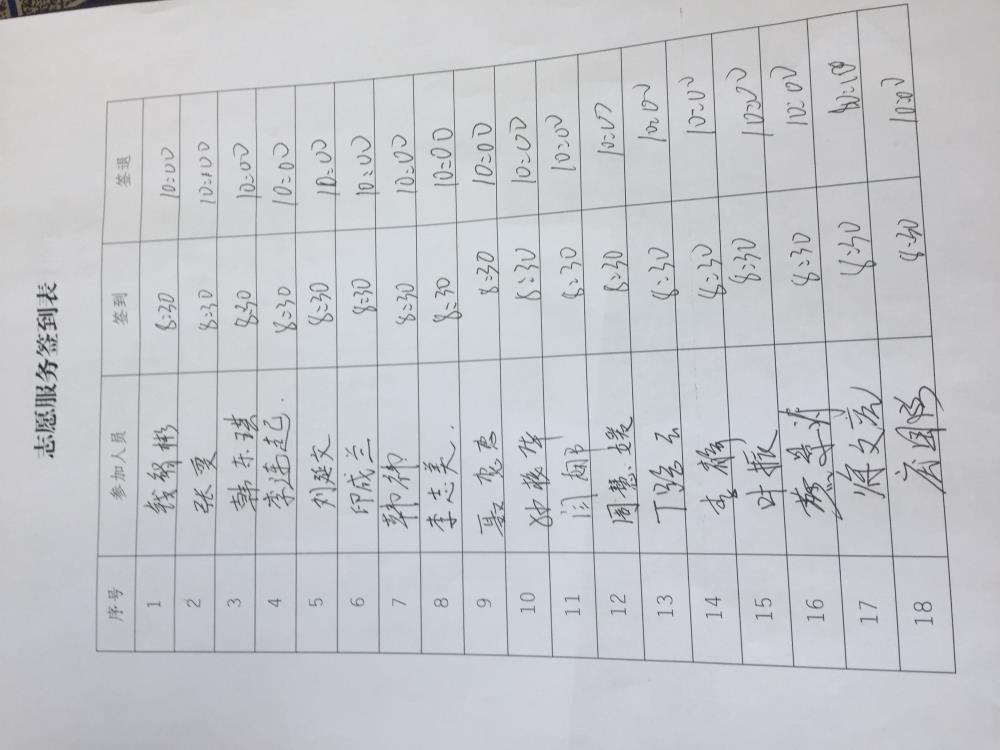 志愿服务签到表
序号 参加人员 签到 签退
1 钱留彬 8:30 10:00
2 张雯 8:30 10:00
3 韩东琪 8:30 10:00
4 李连起. 8:30 10:00
5 刘延文 8:30 10:00
6 印成兰 8:30 10:00
7 韩伟 8:30 10:00
8 李志美. 8:30 10:00
9 8:30 10:00
10 8:30 10:00
11 闫翔 8:30 10:00
12 周慧媛 8:30 10:00
13 8:30 10:00
14 李静 8:30 10:00
15 叶振 8:30 10:00
16 8:30 10:00
17 蒋文亮 8:30 10:00
18 8:30 10:00